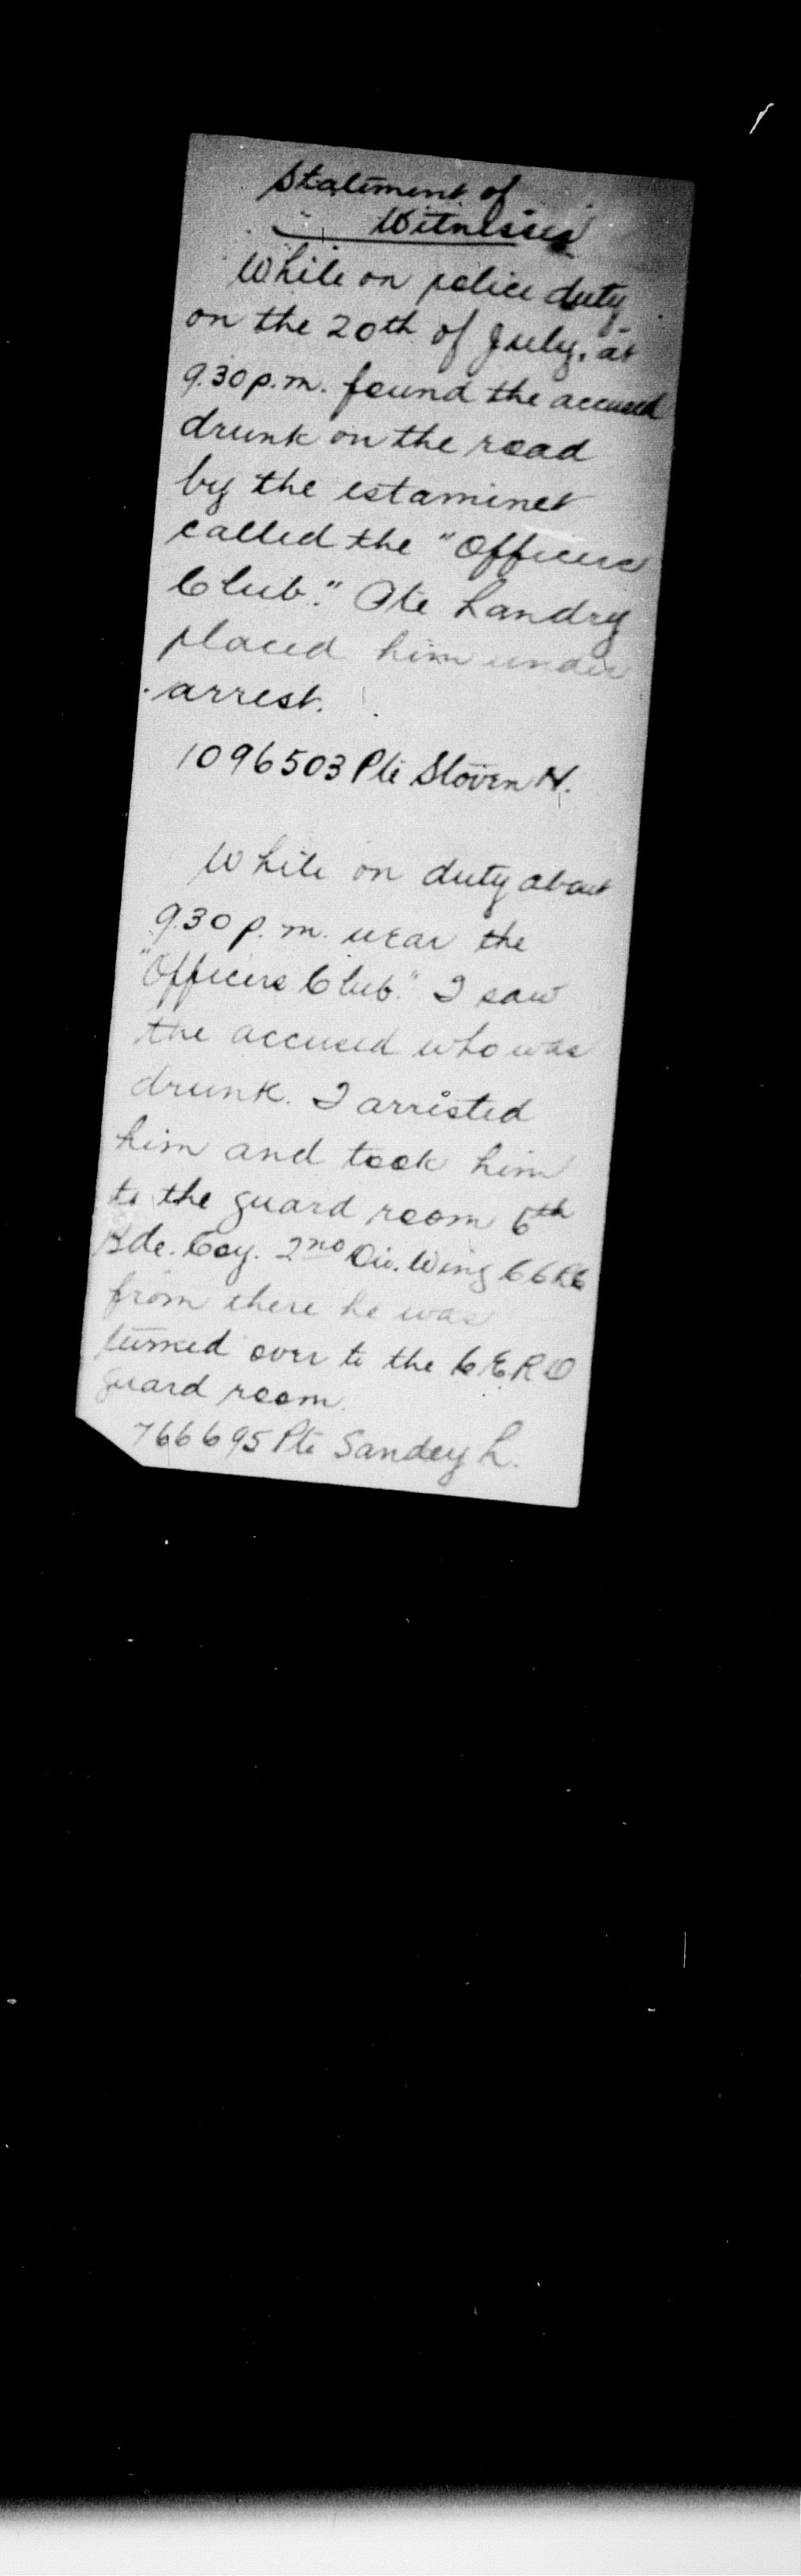 Statement of
Witnesses
While on police duty
on the 20th of July, at
9.30 p.m. found the accused
drunk on the road
by the estaminet
called the "Officers
Club." Pte Landry
placed him under
arrest.
1096503 Pte Stoven N.
While on duty about
9.30 p.m. near the
"Officers Club." I saw
the accused who was
drunk. I arrested
him and took him
to the guard room 6th
Bde. Coy. 2nd Div. Wing CCRC
from there he was
turned over to the C E R D
guard room.
766695 Pte Sandey L.